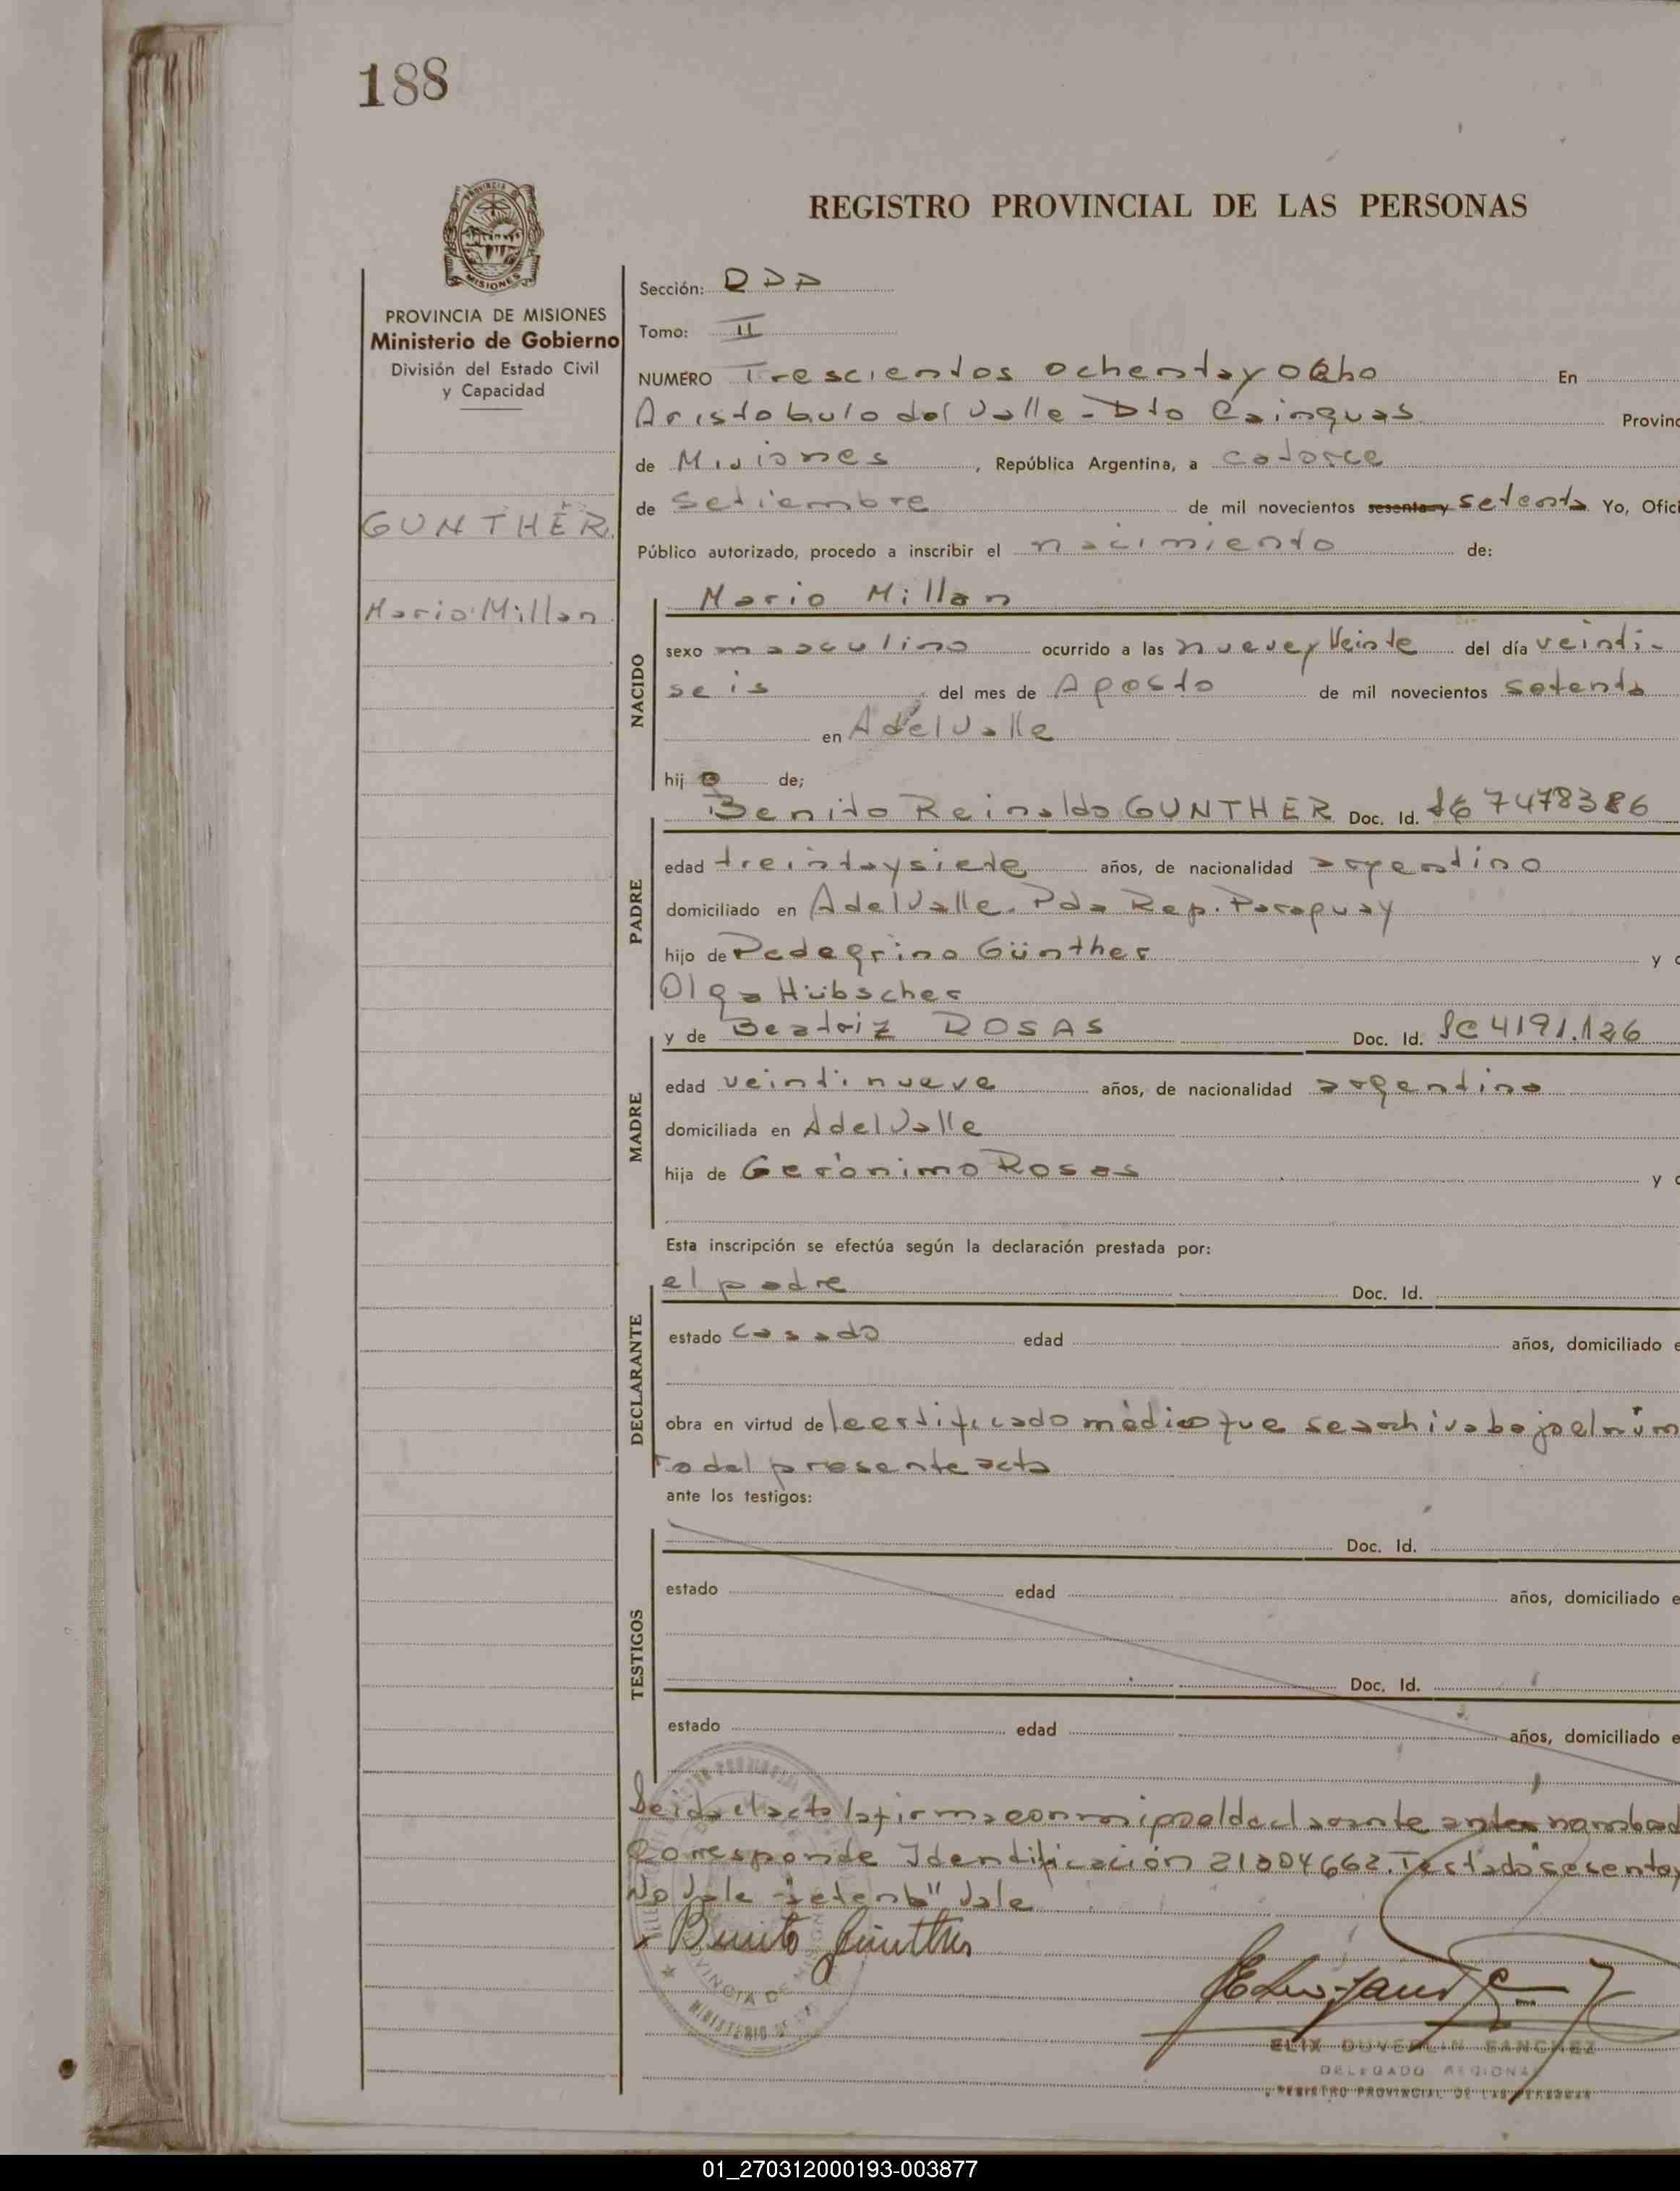 188
REGISTRO PROVINCIAL DE LAS PERSONAS
PROVINCIA
MISIONES
PROVINCIA DE MISIONES
Ministerio de Gobierno
División del Estado Civil
y Capacidad
GUNTHER
Mario Millan
Sección:
Tomo: II
NUMERO Trescientos ochentayocho En
Aristobulo del Valle - Dto Cainguas Provinc
de Misiones, República Argentina, a catorce
de Setiembre de mil novecientos sesenta y setenta Yo, Ofici
Público autorizado, procedo a inscribir el nacimiento de:
NACIDO
Mario Millan
sexo masculino ocurrido a las nueve y veinte del día veinti-
seis del mes de Agosto de mil novecientos setenta
en AdelValle
hijo de;
PADRE
Benito Reinaldo GUNTHER Doc. Id. 7478386
edad treintaysiete años, de nacionalidad argentino
domiciliado en AdelValle. Pda Rep. Paraguay
hijo de Günther y d
Olga Hübscher
MADRE
y de Beatriz ROSAS Doc. Id. 4191.126
edad veintinueve años, de nacionalidad argentina
domiciliada en AdelValle
hija de Gerónimo Rosas y d
Esta inscripción se efectúa según la declaración prestada por:
DECLARANTE
el padre Doc. Id.
estado casado edad años, domiciliado e
obra en virtud del certificado médico que se archiva bajo el núm
ro del presente acta
ante los testigos:
TESTIGOS
Doc. Id.
estado edad años, domiciliado e
Doc. Id.
estado edad años, domiciliado e
Leida el acta la firma conmigo el declarante antes nombrad
Corresponde Identificación 21304662. Testado "sesenta y
No Vale "setenta" Vale
Benito Günther
PROVINCIA DE MISIONES
MINISTERIO DE
ELIX DUVERLIN SANCHEZ
DELEGADO REGIONAL
REGISTRO PROVINCIAL DE LAS PERSONAS
01_270312000193-003877